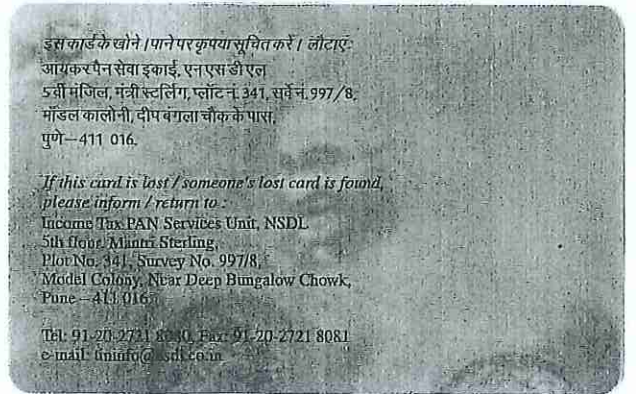 इस कार्ड के खोने / पाने पर कृपया सूचित करें / लौटाएं:
आयकर पैन सेवा इकाई, एन एस डी एल
5 वीं मंजिल, मंत्री स्टर्लिंग, प्लॉट नं. 341, सर्वे नं. 997/8,
मॉडल कालोनी, दीप बंगला चौक के पास,
पुणे—411 016.
If this card is lost / someone's lost card is found,
please inform / return to :
Income Tax PAN Services Unit, NSDL
5th floor, Mantri Sterling,
Plot No. 341, Survey No. 997/8,
Model Colony, Near Deep Bungalow Chowk,
Pune – 411 016.
Tel: 91-20-2721 8080, Fax: 91-20-2721 8081
e-mail: tininfo@nsdl.co.in